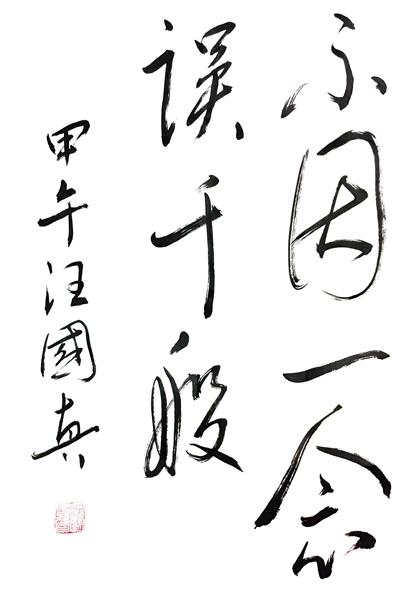 不因一念
误千般
甲午汪國真